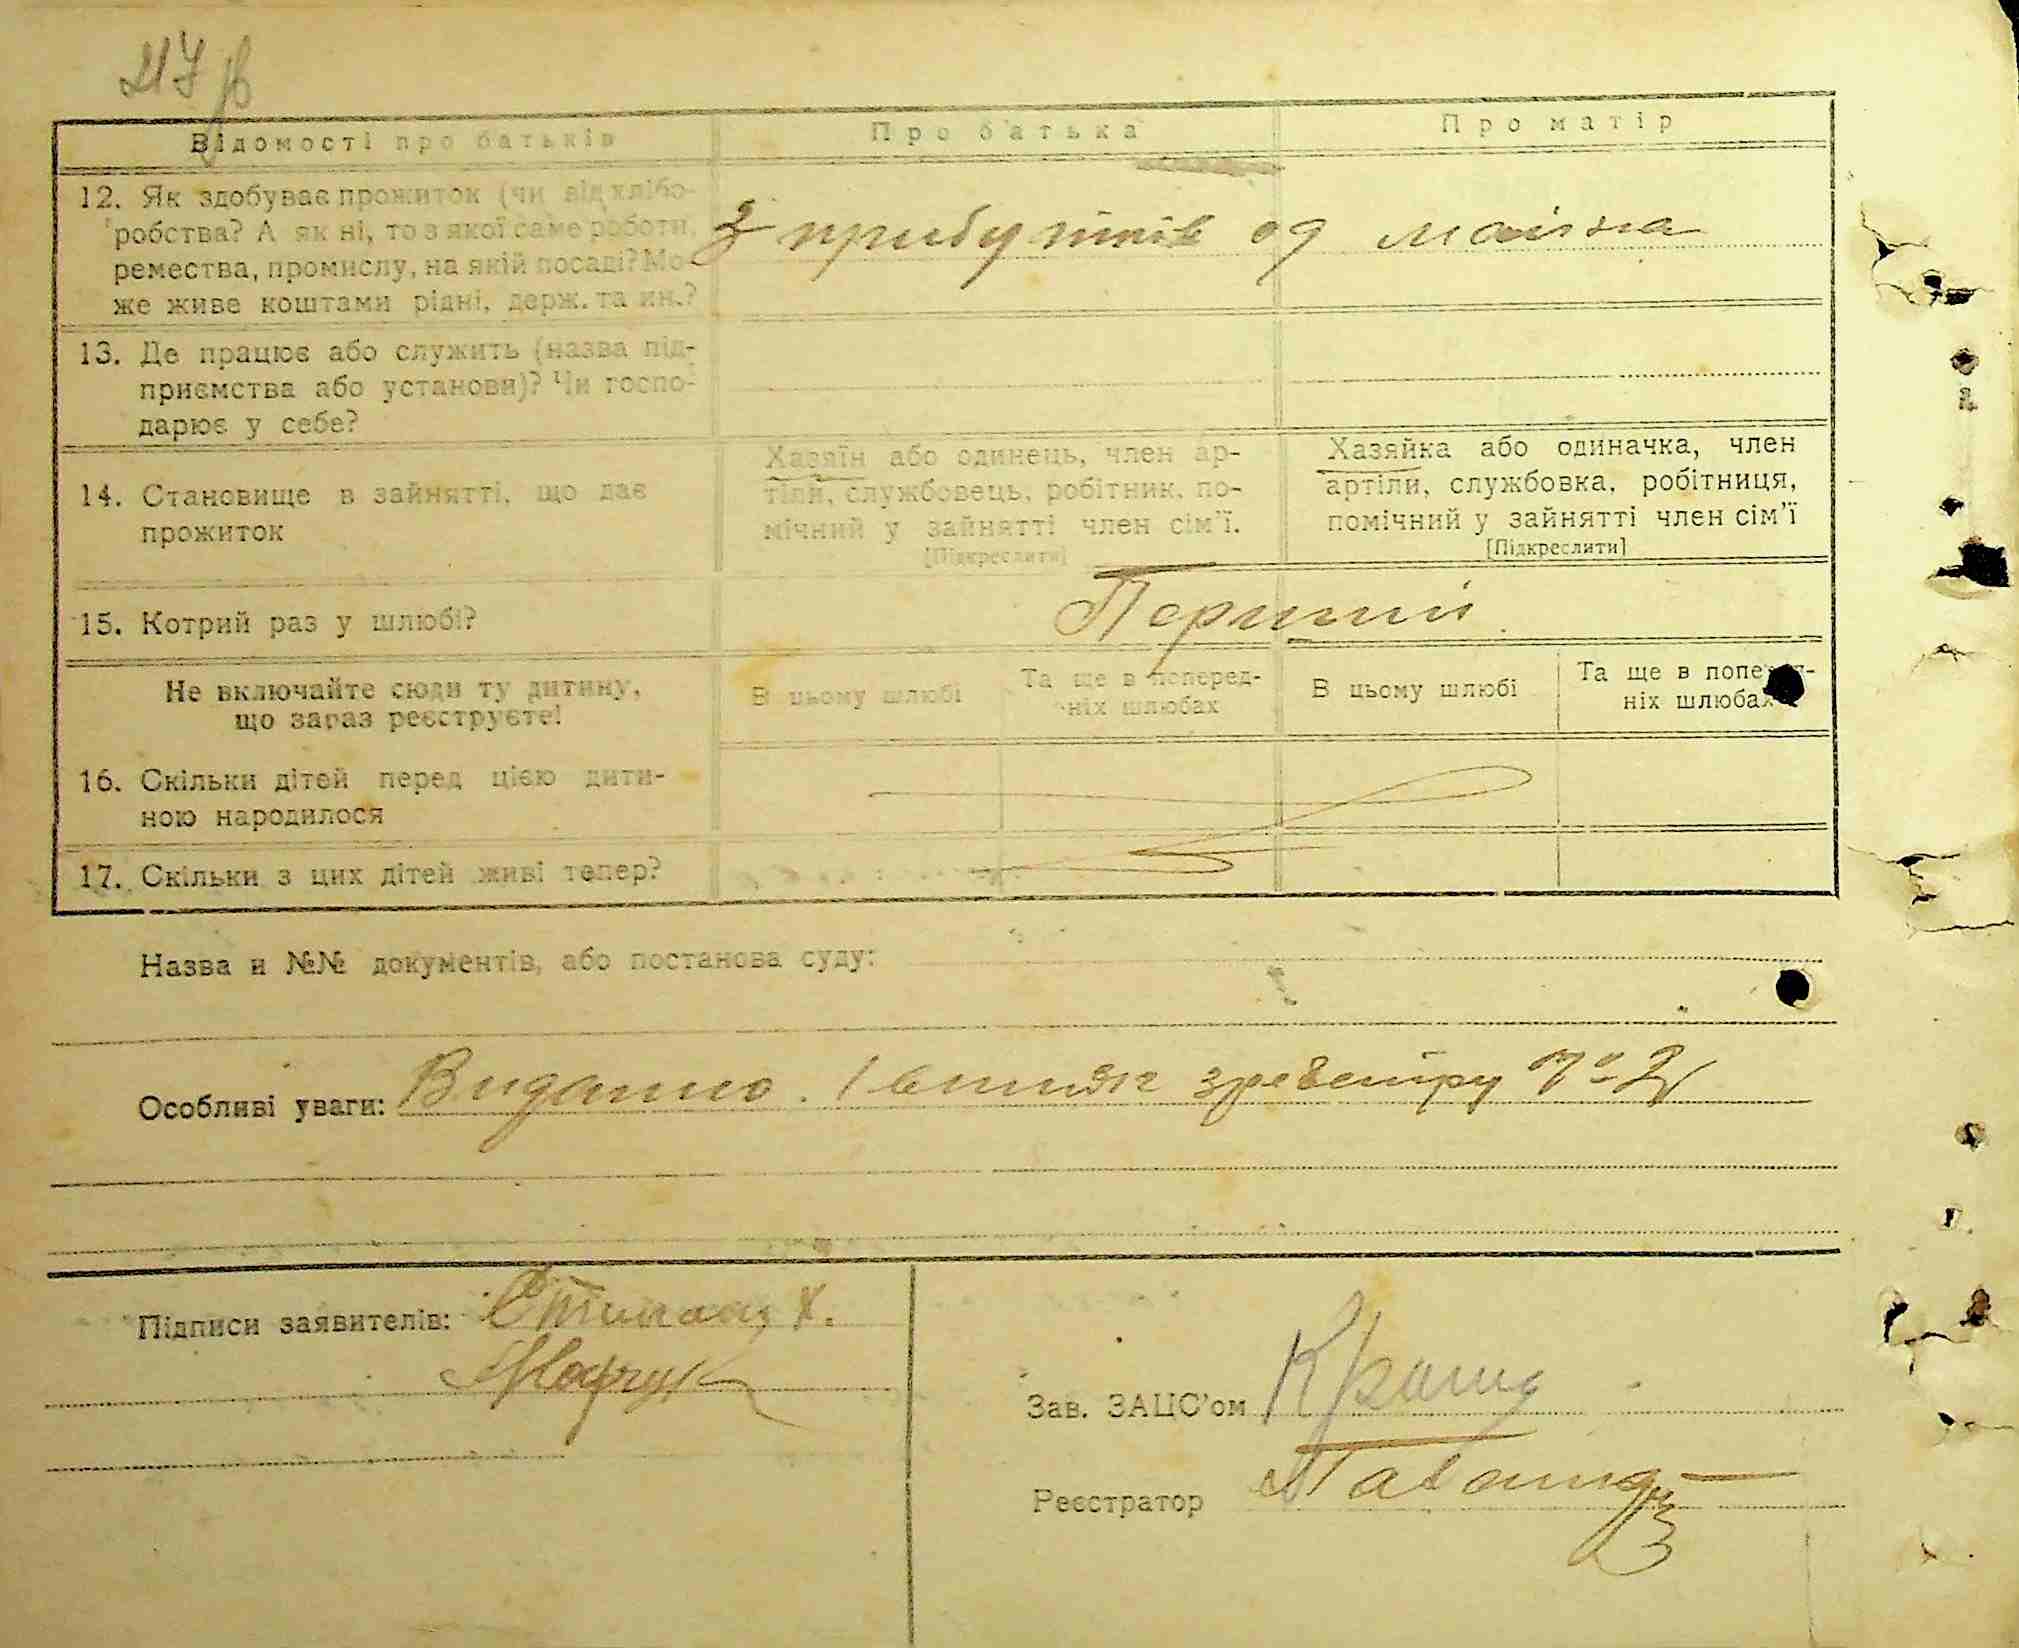 217
Відомості про батьків
Про батька
Про матір
12. Як здобуває прожиток (чи від хлібо-
робства? А як ні, то з якої саме роботи,
ремества, промислу, на якій посаді? Мо-
же живе коштами рідні, держ. та ин.?
З прибутків од маiна
13. Де працює або служить (назва під-
приємства або установи)? Чи госпо-
дарює у себе?
14. Становище в зайнятті, що дає
прожиток
Хазяїн або одинець, член ар-
тіли, службовець, робітник, по-
мічний у зайнятті член сім'ї.
[Підкреслити]
Хазяйка або одиначка, член
артіли, службовка, робітниця,
помічний у зайнятті член сім'ї
[Підкреслити]
15. Котрий раз у шлюбі?
Перший
Не включайте сюди ту дитину,
що зараз реєструєте!
В цьому шлюбі
Та ще в поперед-
ніх шлюбах
В цьому шлюбі
Та ще в поперед-
ніх шлюбах
16. Скільки дітей перед цією дити-
ною народилося
17. Скільки з цих дітей живі тепер?
Назва и №№ документів, або постанова суду:
Особливі уваги: Виданно
Підписи заявителів:
Зав. ЗАЦС'ом
Реєстратор